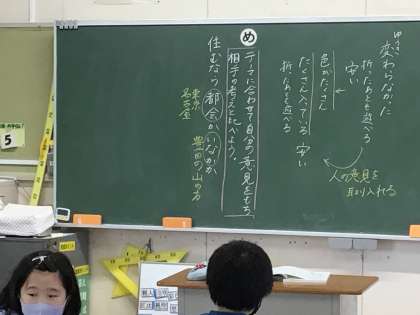 変わらなかった
安い
折ったあとも遊べる
色がたくさん
たくさん入っている
安い
折ったあとも遊べる
人の意見を
取り入れる
め
テーマに合わせて自分の意見をもち
相手の考えと比べよう。
住むなら都会かいなかか
東京
名古屋
豊田の山の方
5